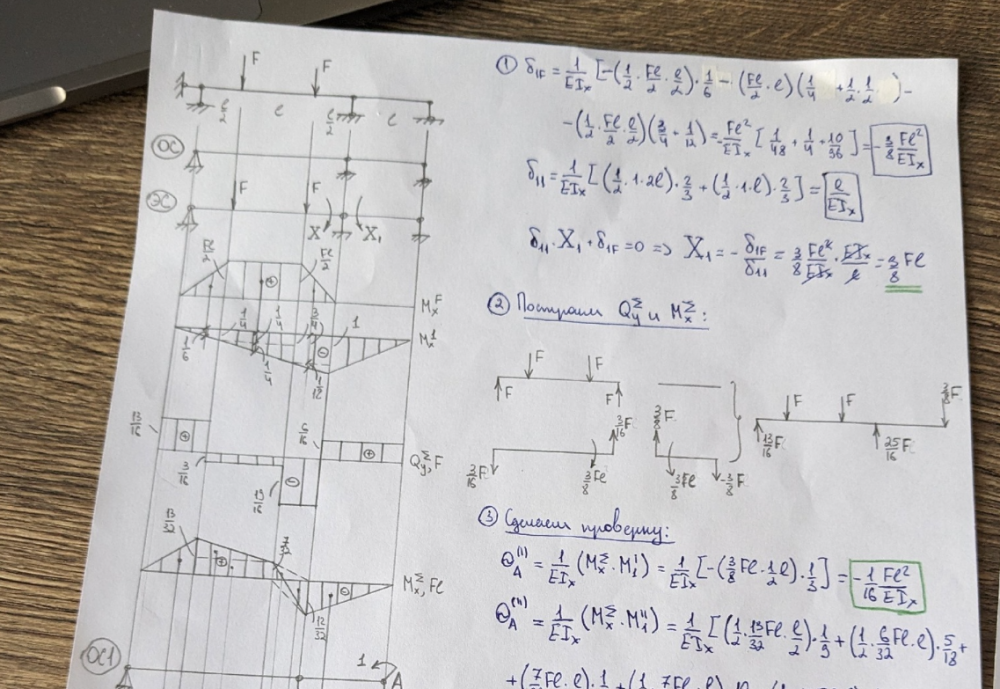 F F
l/2 l l/2 l
ОС
ЭС F F X₁ X₁
Fl/2 ⊕ Fl/2 M_x^F
1/6 1/4 1/4 1/4 3/4 1/12 ⊖ 1 M_x^1
13/16 ⊕ 3/16 ⊖ 19/16 6/16 ⊕ Q_y^Σ, F
13/32 ⊕ 7/32 12/32 M_x^Σ, Fl
ОС1 1 A
① δ_1F = 1/EI_x [-(1/2 · Fl/2 · l/2) · 1/6 - (Fl/2 · l)(1/4 + 1/2 · 1/2) -
-(1/2 · Fl/2 · l/2)(3/4 + 1/12) = -Fl²/EI_x [1/48 + 1/4 + 10/96] = -3/8 Fl²/EI_x
δ_11 = 1/EI_x [(1/2 · 1 · 2l) · 2/3 + (1/2 · 1 · l) · 2/3] = l/EI_x
δ_11 · X_1 + δ_1F = 0 => X_1 = - δ_1F/δ_11 = 3/8 Fl²/EI_x · EI_x/l = 3/8 Fl
② Построим Q_y^Σ и M_x^Σ:
F F
F F
3/16 F 3/8 Fl 3/16 F
3/8 F 3/8 Fl -3/8 F
F F 3/8 F
13/16 F 25/16 F
③ Сделаем проверку:
Θ_A^(I) = 1/EI_x (M_x^Σ · M_1^I) = 1/EI_x [-(3/8 Fl · 1/2 l) · 1/3] = -1/16 Fl²/EI_x
Θ_A^(II) = 1/EI_x (M_x^Σ · M_1^II) = 1/EI_x [(1/2 · 13/32 Fl · l/2) · 1/9 + (1/2 · 6/32 Fl · l) · 5/18 +